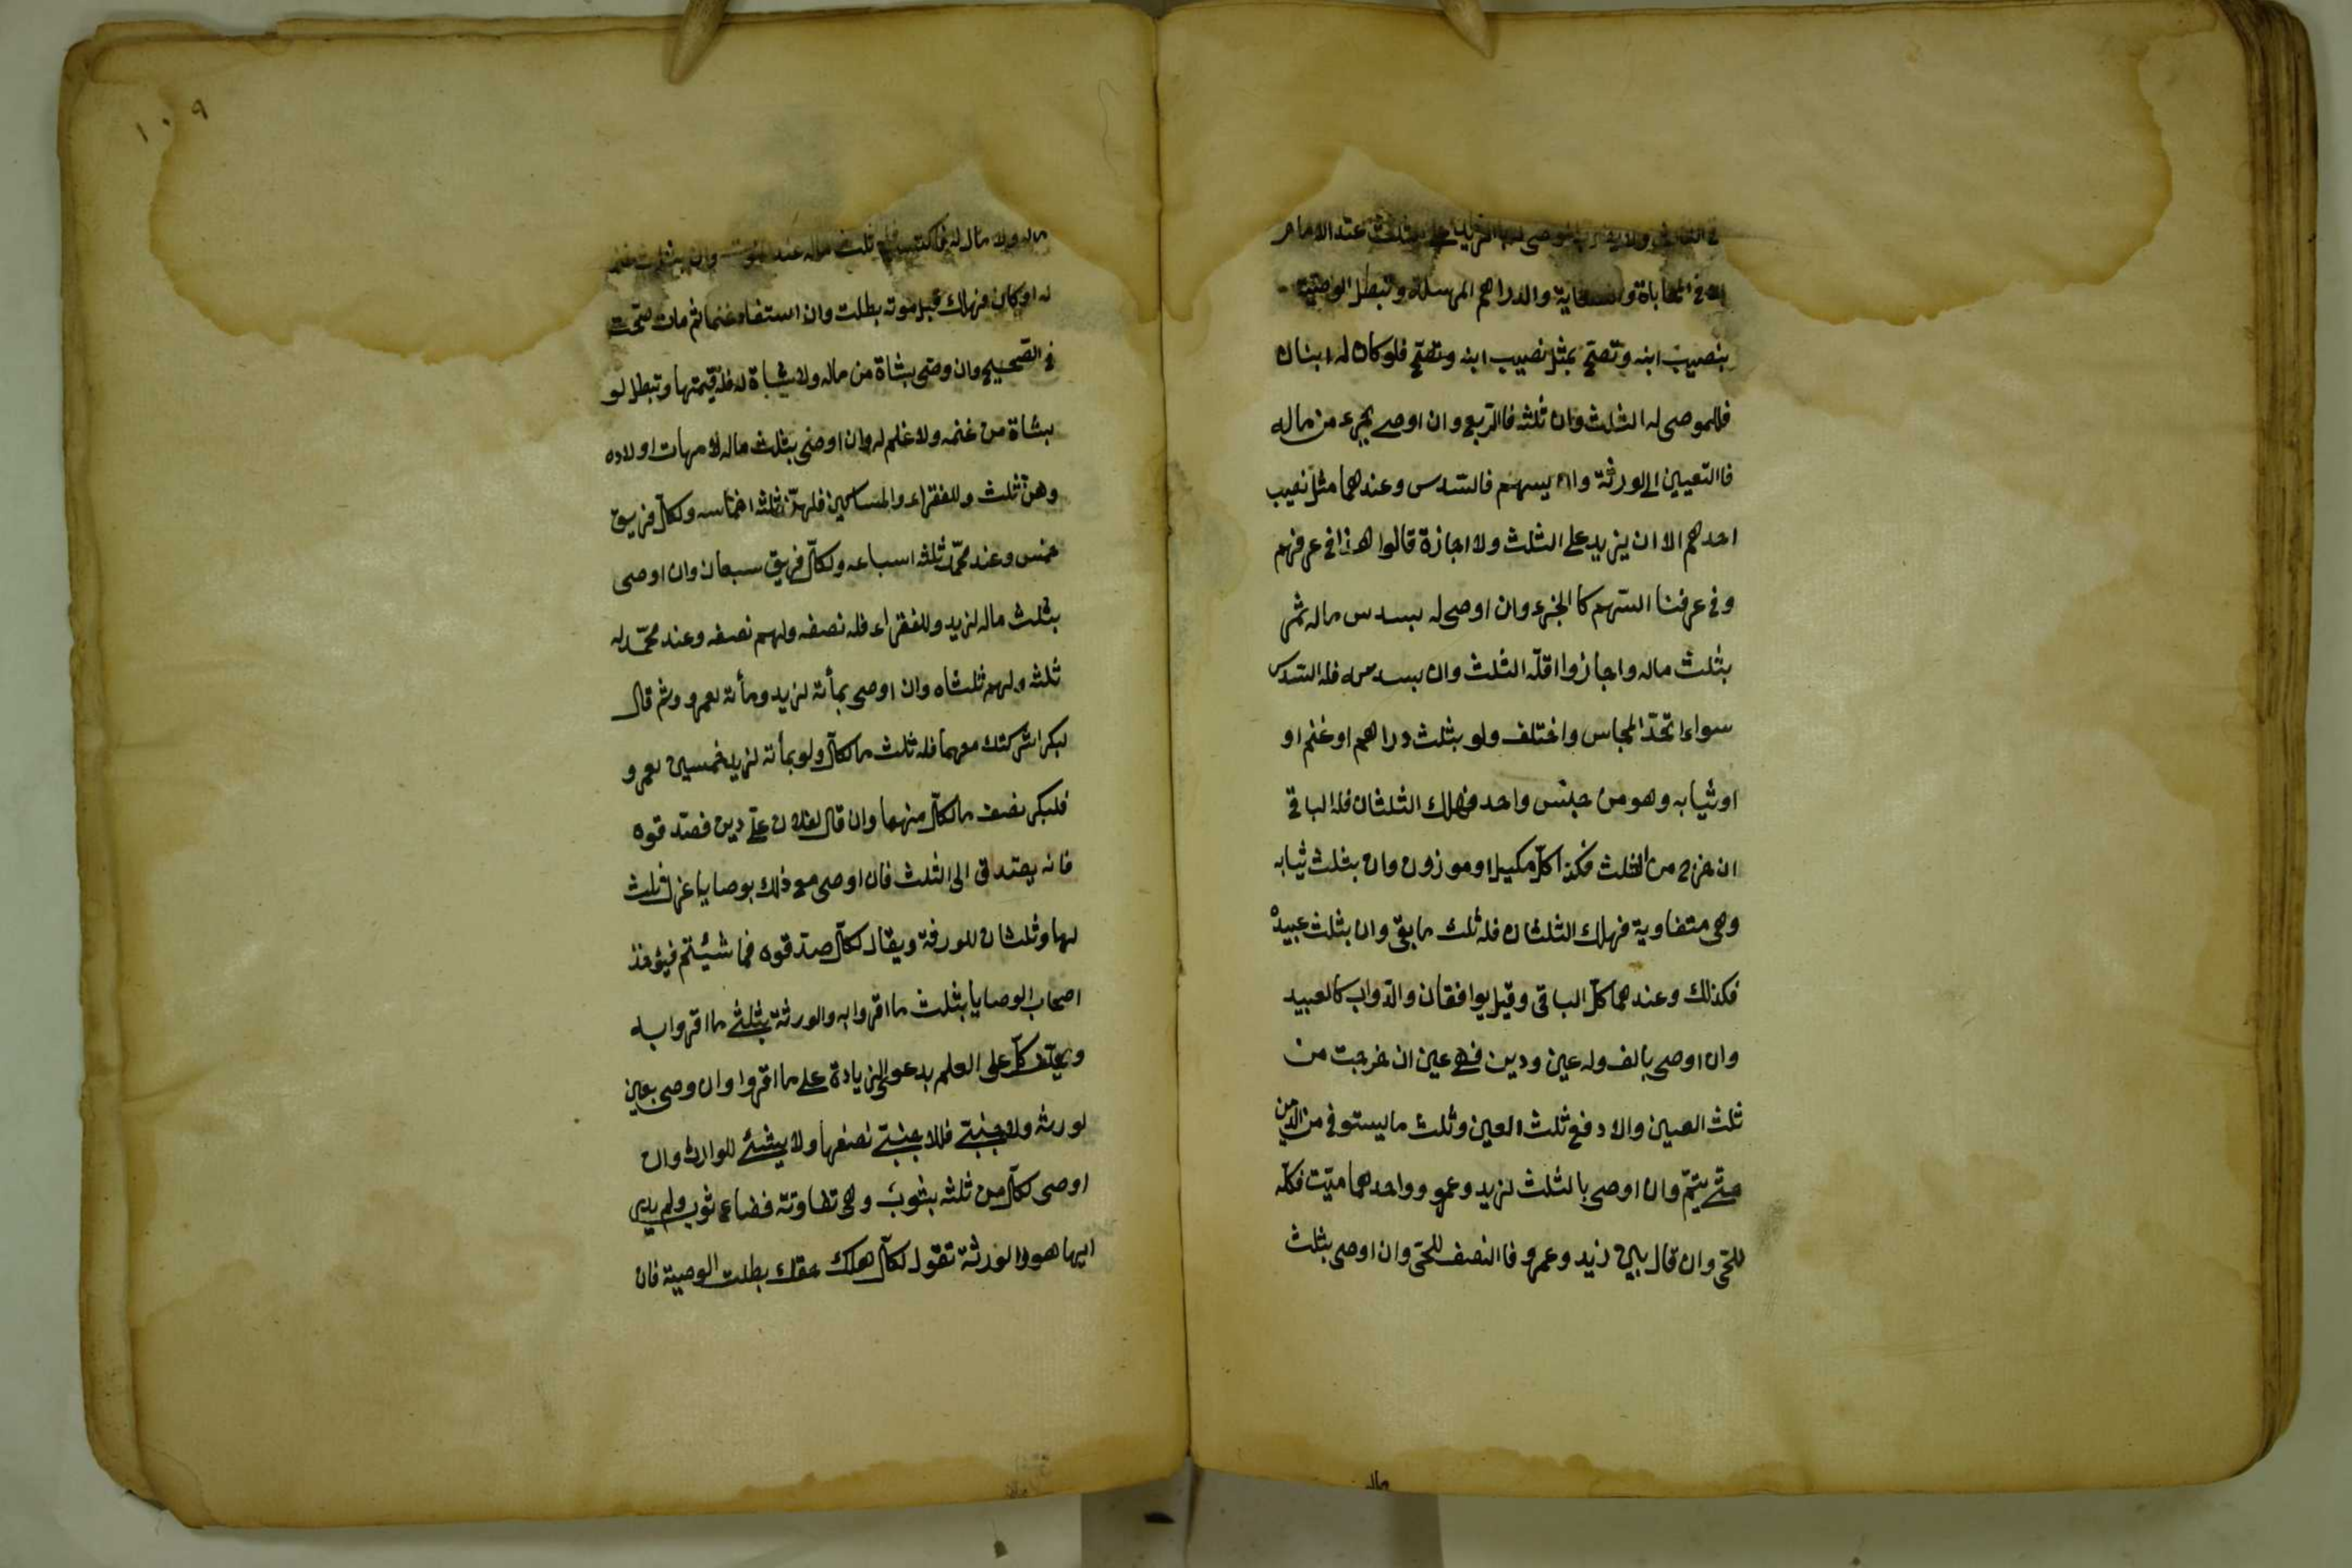 في الثلث ولا يضرب الموصى له بما زاد على الثلث عند الامام
الا في المحاباة والسعاية والدراهم المرسلة وتبطل الوصية
بنصيب ابنه وتصح بمثل نصيب ابنه وتصح فلو كان له ابنان
فللموصى له الثلث وان ثلثه فالربع وان اوصى بجزء من ماله
فالتعيين الى الورثة وان بسهم فالسدس وعندهما مثل نصيب
احدهم الا ان يزيد على الثلث ولا اجازة قالوا هذا في عرفهم
وفي عرفنا السهم كالجزء وان اوصى له بسدس ماله ثم
بثلث ماله واجازوا فله الثلث وان بسدسه فله السدس
سواء اتحد المجلس واختلف ولو بثلث دراهم او غنم او
او ثيابه وهو من جنس واحد فهلك الثلثان فله الباقي
ان خرج من الثلث فكذا كل مكيل او موزون وان بثلث ثيابه
وهي متفاوية فهلك الثلثان فله ثلث ما بقي وان بثلث عبيده
فكذلك وعندهما كل الباقي وقيل يوافقان والدواب كالعبيد
وان اوصى بالف وله عين ودين فهي عين ان خرجت من
ثلث العين والا دفع ثلث العين وثلث ما يستوفي من الدين
حتى يتم وان اوصى بالثلث لزيد وعمرو وواحدهما ميت فكله
للحي وان قال بين زيد وعمرو فالنصف للحي وان اوصى بثلث
ماله
١٠٩
ماله ولا مال له فاكتسب فله ثلث ماله عند الموت وان بثلث غنمه
له او كان فهلك قبل موته بطلت وان استفاد غنما ثم مات صحت
في الصحيح وان وصى بشاة من ماله ولا شاة له فله قيمتها وتبطل لو
بشاة من غنمه ولا غنم له وان اوصى بثلث ماله لامهات اولاده
وهن ثلث وللفقراء والمساكين فلهن ثلثة اخماسه ولكل فريق
خمس وعند محمد ثلثه اسباعه ولكل فريق سبعان وان اوصى
بثلث ماله لزيد وللفقراء فله نصفه ولهم نصفه وعند محمد له
ثلثه ولهم ثلثاه وان اوصى بمأته لزيد ومأته لعمرو وثم قال
لبكر اشركتك معهما فله ثلث ما لكل ولو بمأته لزيد خمسين لعمرو
فلبكر نصف ما لكل منهما وان قال لفلان علي دين فصدقوه
فانه يصدق الى الثلث فان اوصى مع ذلك بوصايا عزل ثلث
لها وثلثان للورثة ويقال لكل صدقوه فيما شيئتم فيؤخذ
اصحاب الوصايا بثلث ما اقروا به والورثة بثلثي ما اقروا به
ويحلف كل على العلم بدعوى الزيادة على ما اقروا وان وصى بعين
لورثه ولاجنبي فللاجنبي نصفها ولا شيئ للوارث وان
اوصى لكل من ثلثه بثوب وهي تفاوتة فضاع ثوب ولم يدر
ايها هو والورثة تقول لكل هلك حقك بطلت الوصية فان